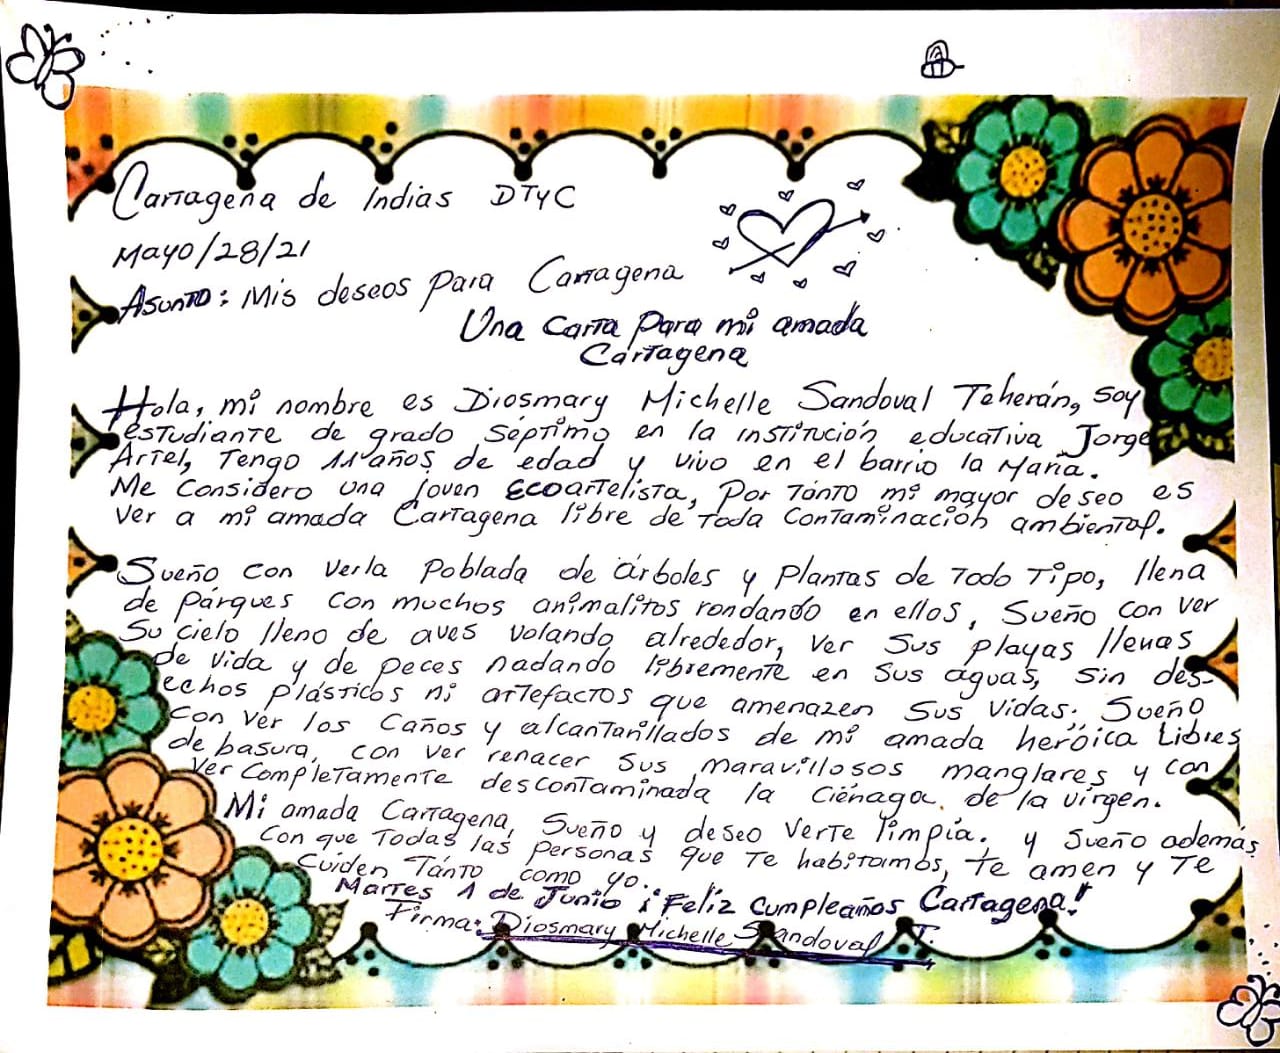 Cartagena de Indias DTyC
Mayo/28/21
Asunto: Mis deseos para Cartagena
Una carta para mi amada
Cartagena
Hola, mi nombre es Diosmary Michelle Sandoval Teherán, soy
estudiante de grado séptimo en la institución educativa Jorge
Artel, Tengo 11 años de edad y vivo en el barrio la María.
Me considero una joven ECOartelista, por tánto mi mayor deseo es
ver a mi amada Cartagena libre de toda contaminación ambiental.
Sueño con verla poblada de árboles y plantas de todo tipo, llena
de párques con muchos animalitos rondando en ellos, sueño con ver
su cielo lleno de aves volando alrededor, ver sus playas llenas
de vida y de peces nadando libremente en sus aguas, sin des-
echos plásticos ni artefactos que amenazen sus vidas; sueño
con ver los caños y alcantarillados de mi amada heróica libres
de basura, con ver renacer sus maravillosos manglares y con
ver completamente descontaminada la ciénaga de la virgen.
Mi amada Cartagena, sueño y deseo verte limpia. y sueño además
con que todas las personas que te habitamos, te amen y te
cuiden tánto como yo.
Martes 1 de Junio ¡Feliz cumpleaños Cartagena!
Firma: Diosmary Michelle Sandoval T.